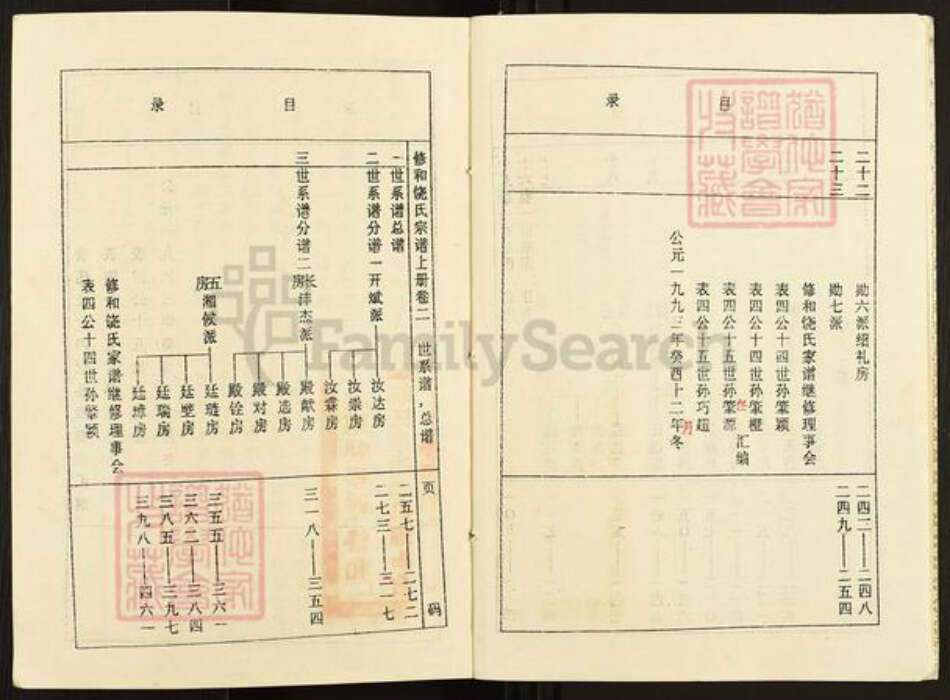 目录
二十二 勋六派绍礼房 二四二——二四八
二十三 勋七派 二四九——二五四
修和饶氏家谱继修理事会
表四公十四世孙肇颖
表四公十四世孙肇橙
表四公十五世孙肇源
表四公十五世孙巧超
任
汇编
公元一九九三年癸酉十二年冬
月
猶他家譜學會收藏
目录
修和饶氏宗谱上册卷二 世系谱,总谱 页码
一世系谱总谱 二五七——二七二
二世系谱分谱一开斌派 二七三——三一七
汝达房
汝崇房
汝霖房
三世系谱分谱二长房沣杰派 三一八——三五四
殿献房
殿选房
殿对房
殿铨房
五房湘候派
廷琏房 三五五——三六一
廷壁房 三六二——三八四
廷瑞房 三八五——三九七
廷璋房 三九八——四六一
修和饶氏家谱继修理事会
表四公十四世孙肇颖
猶他家譜學會收藏
FamilySearch